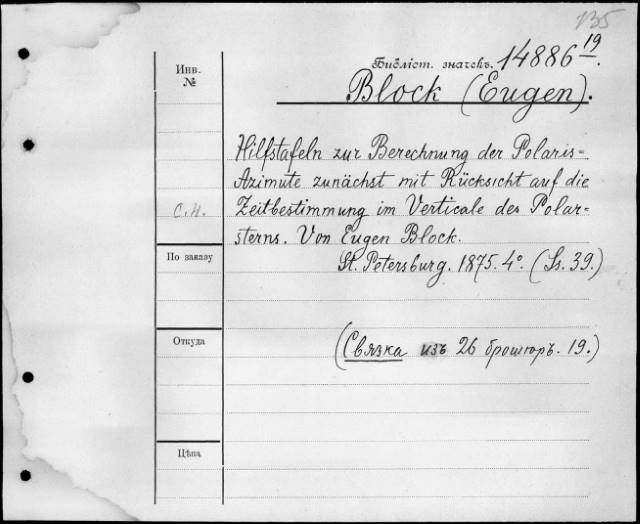 135
Библіот. значекъ. 14886 19.
Инв. №
Block (Eugen).
Hilfstafeln zur Berechnung der Polaris-
Azimute zunächst mit Rücksicht auf die
с.н. Zeitbestimmung im Verticale des Polar-
sterns. Von Eugen Block.
По заказу
St. Petersburg. 1875. 4° (Ss. 39.)
Откуда
(Связка изъ 26 брошюръ. 19.)
Цѣна